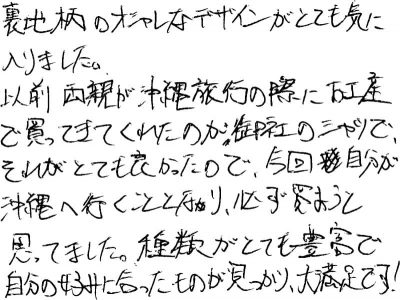 裏地柄のオシャレなデザインがとても気に
入りました。
以前両親が沖縄旅行の際にお土産
で買ってきてくれたのが御社のシャツで、
それがとても良かったので、今回自分が
沖縄へ行くこととなり、必ず買おうと
思ってました。種類がとても豊富で
自分の好みに合ったものが見つかり、大満足です!